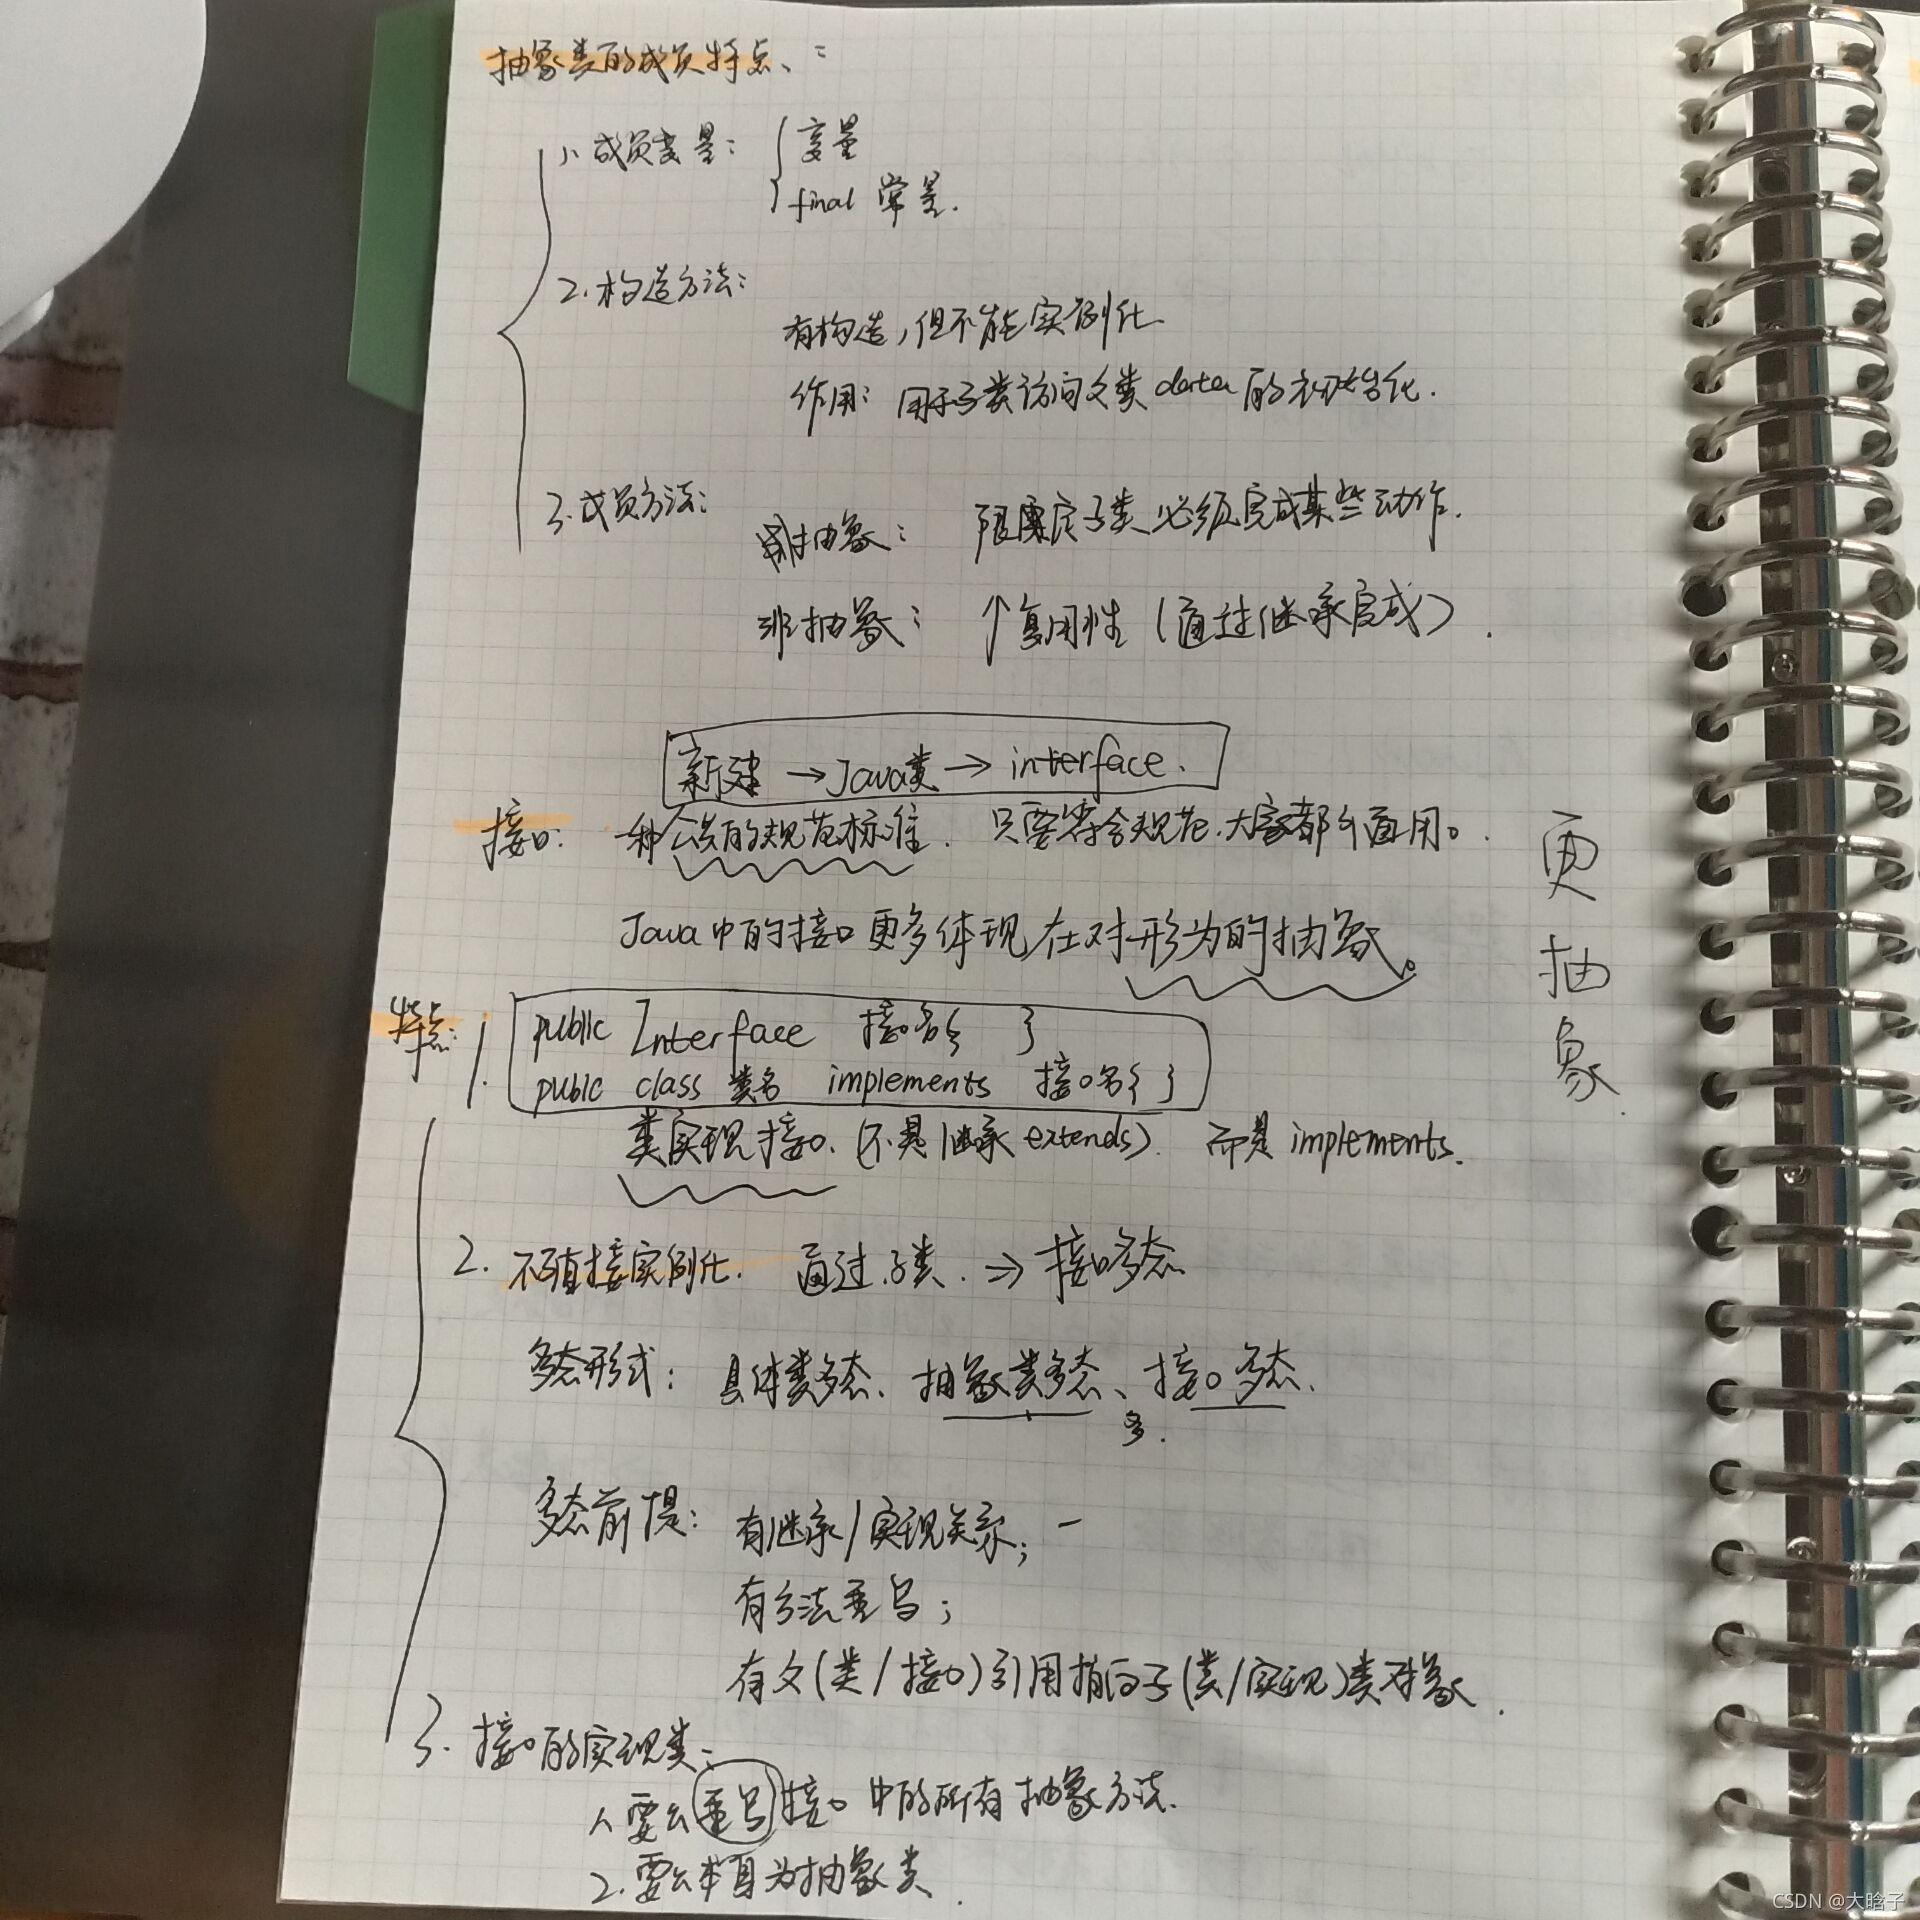 抽象类的成员特点:
1、成员变量: 变量
final 常量.
2.构造方法:
有构造,但不能实例化.
作用: 用于子类访问父类data的初始化.
3.成员方法:
抽象: 限定子类必须完成某些动作.
非抽象: ↑复用性(通过继承完成).
新建→Java类→interface.
接口: 一种公共的规范标准. 只要符合规范,大家都可通用。
Java中的接口更多体现在对形为的抽象。
更抽象.
特点:
1. public Interface 接口名{ }
public class 类名 implements 接口名{ }
类实现接口.(不是继承extends). 而是implements.
2. 不可直接实例化. 通过子类.⇒接口多态
多态形式: 具体类多态、抽象类多态、接口多态.
多.
多态前提: 有继承/实现关系; 一
有方法重写;
有父(类/接口)引用指向子(类/实现)类对象.
3. 接口的实现类:
1.要么重写接口中的所有抽象方法.
2.要么本身为抽象类.
CSDN @大晗子